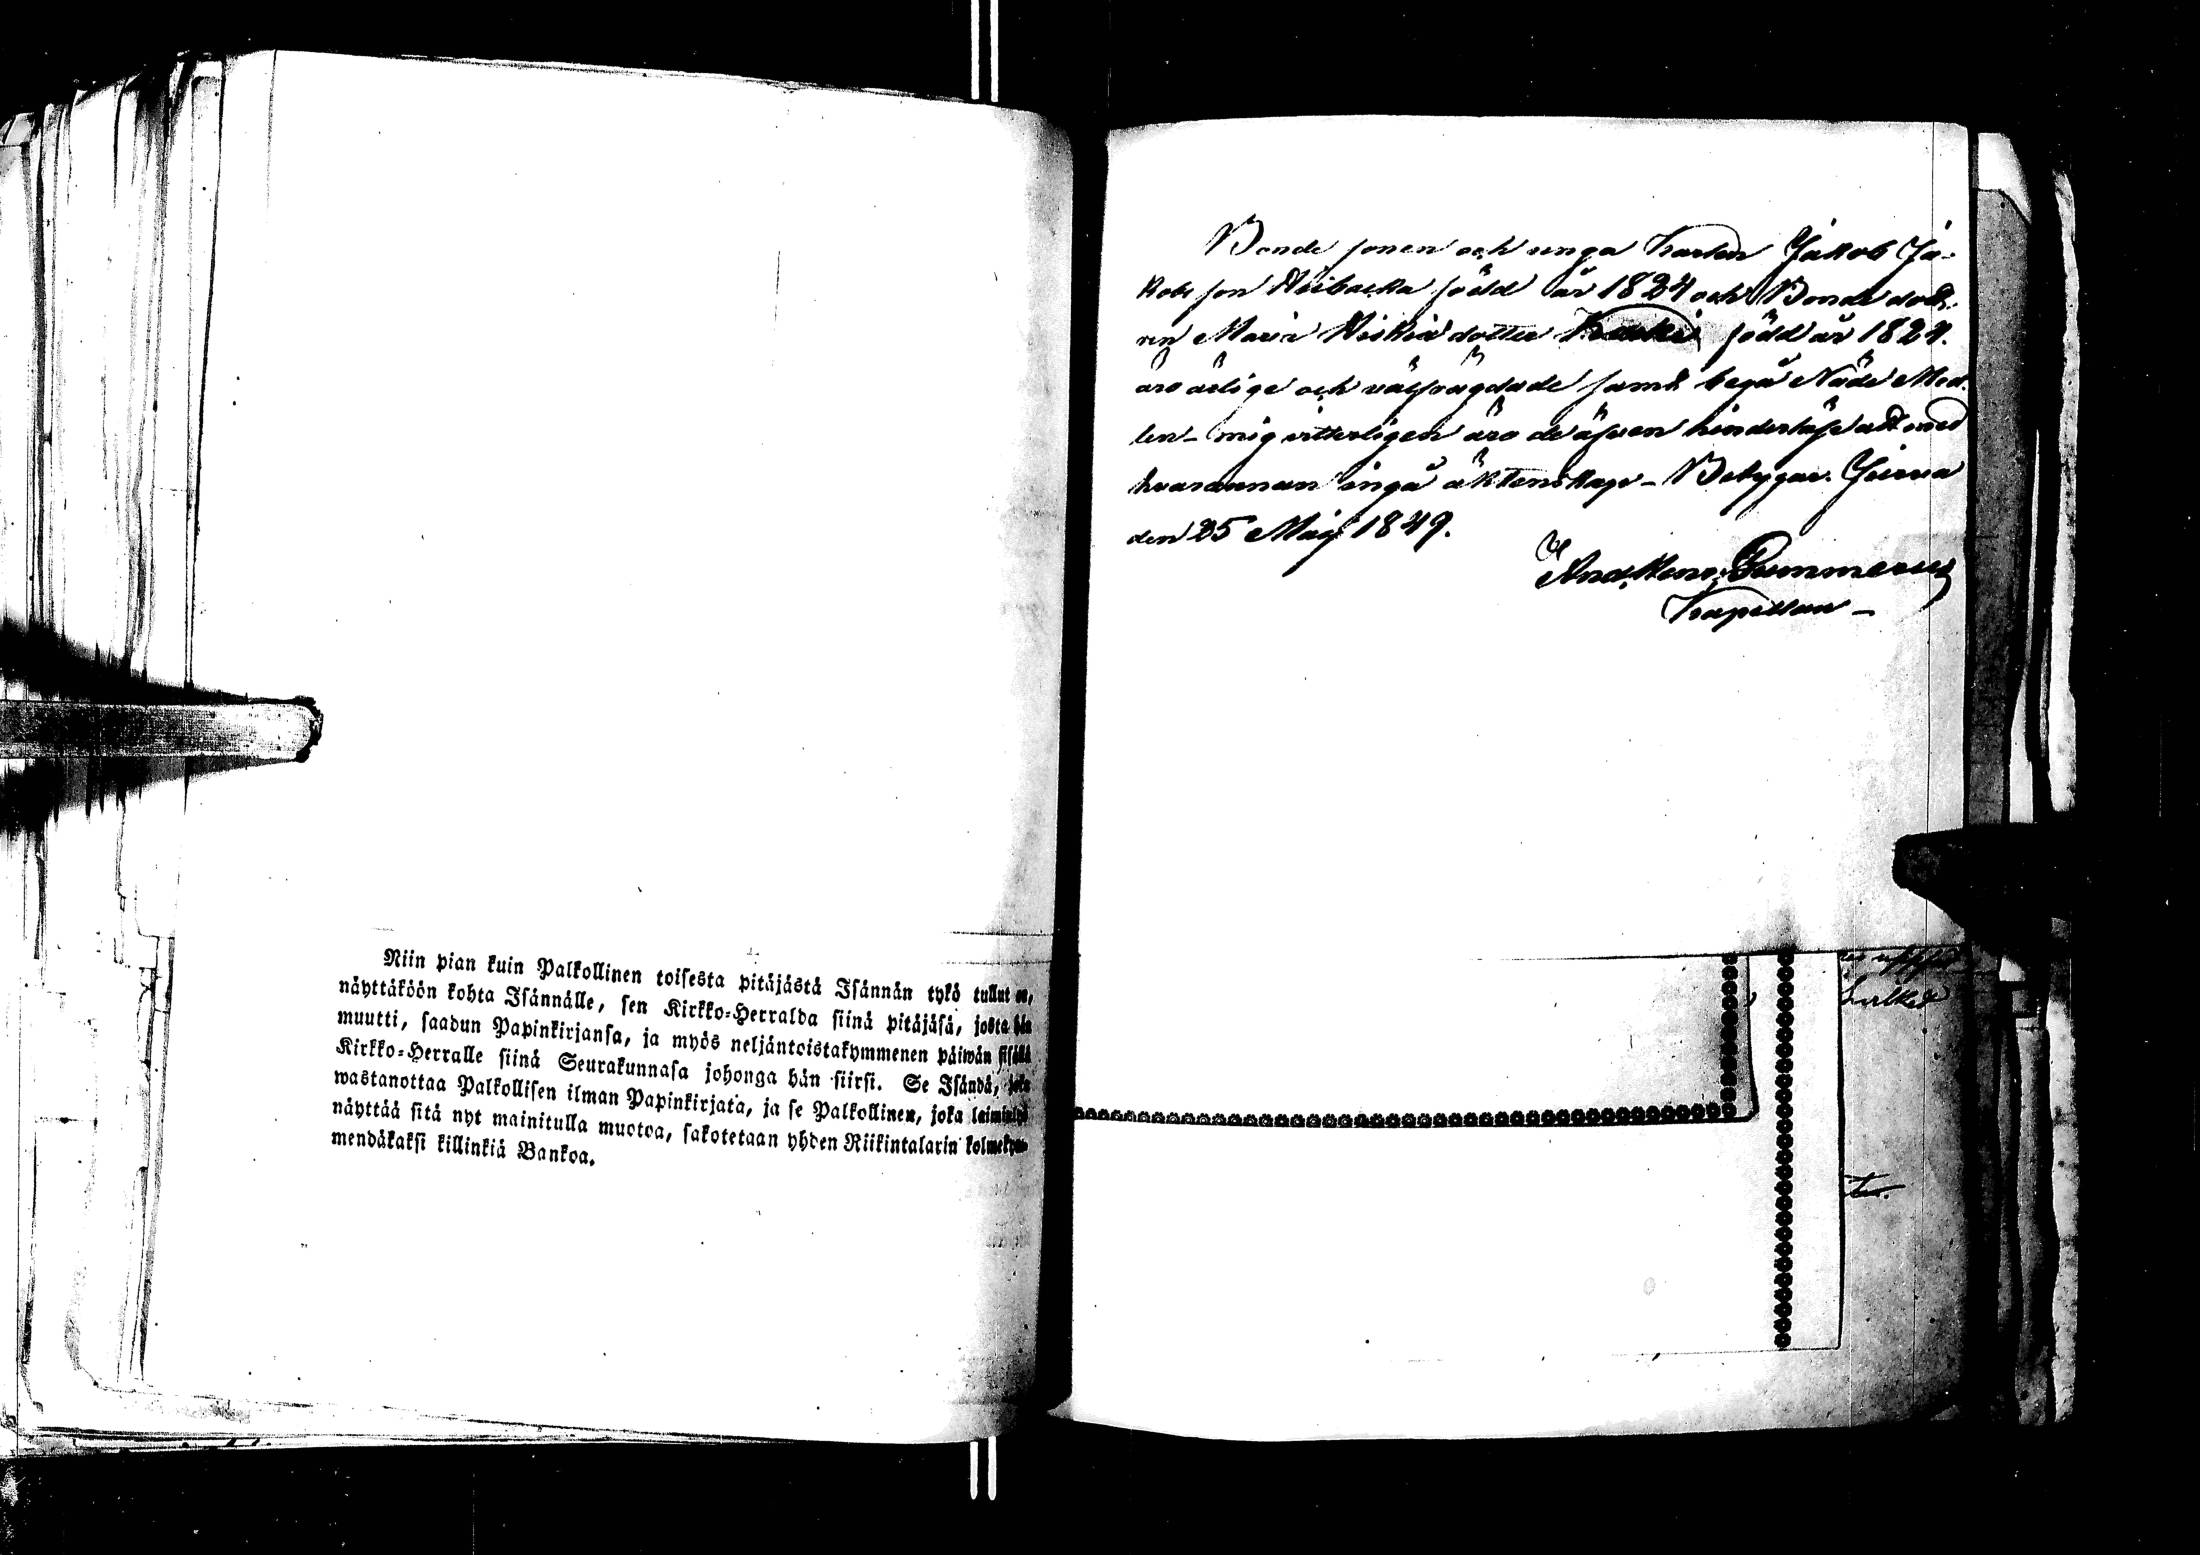 Niin pian kuin Palkollinen toisesta pitäjästä Isännän tykö tullut on,
näyttäköön kohta Isännälle, sen Kirkko-Herralda siinä pitäjäsä, josta hän
muutti, saadun Papinkirjansa, ja myös neljäntoistakymmenen päiwän sisällä
Kirkko-Herralle siinä Seurakunnasa johonga hän siirsi. Se Isändä, joka
wastanottaa Palkollisen ilman Papinkirjata, ja se Palkollinen, joka laiminlyö
näyttää sitä nyt mainitulla muotoa, sakotetaan yhden Riikintalarin kolmekym-
mendäkaksi killinkiä Bankoa.
Bonde sonen och unga Karlen Jakob Ja-
kobs son född år 1824 och Bonde dott.
ren Maria dotter född år 1824.
äro ärlige och välfrägdade samt begå Nåde Med.
len - mig vitterligen äro de äfven hinderlöse att med
hvarannan ingå äktenskap - Betygar. Jurva
den 25 Maij 1849.
And. Henr.
Kapellan -